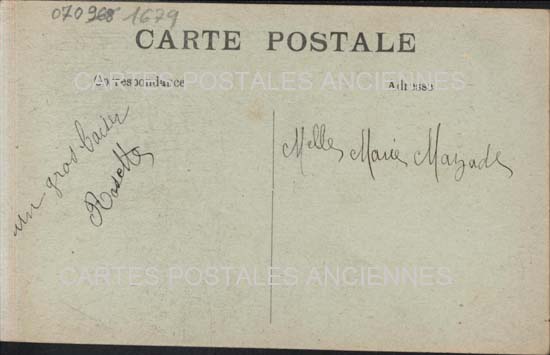 070968 1679
CARTE POSTALE
Correspondance
Adresse
CARTES POSTALES ANCIENNES
un gros baiser
Rosette
Melle Marie Mazade
CARTES POSTALES ANCIENNES